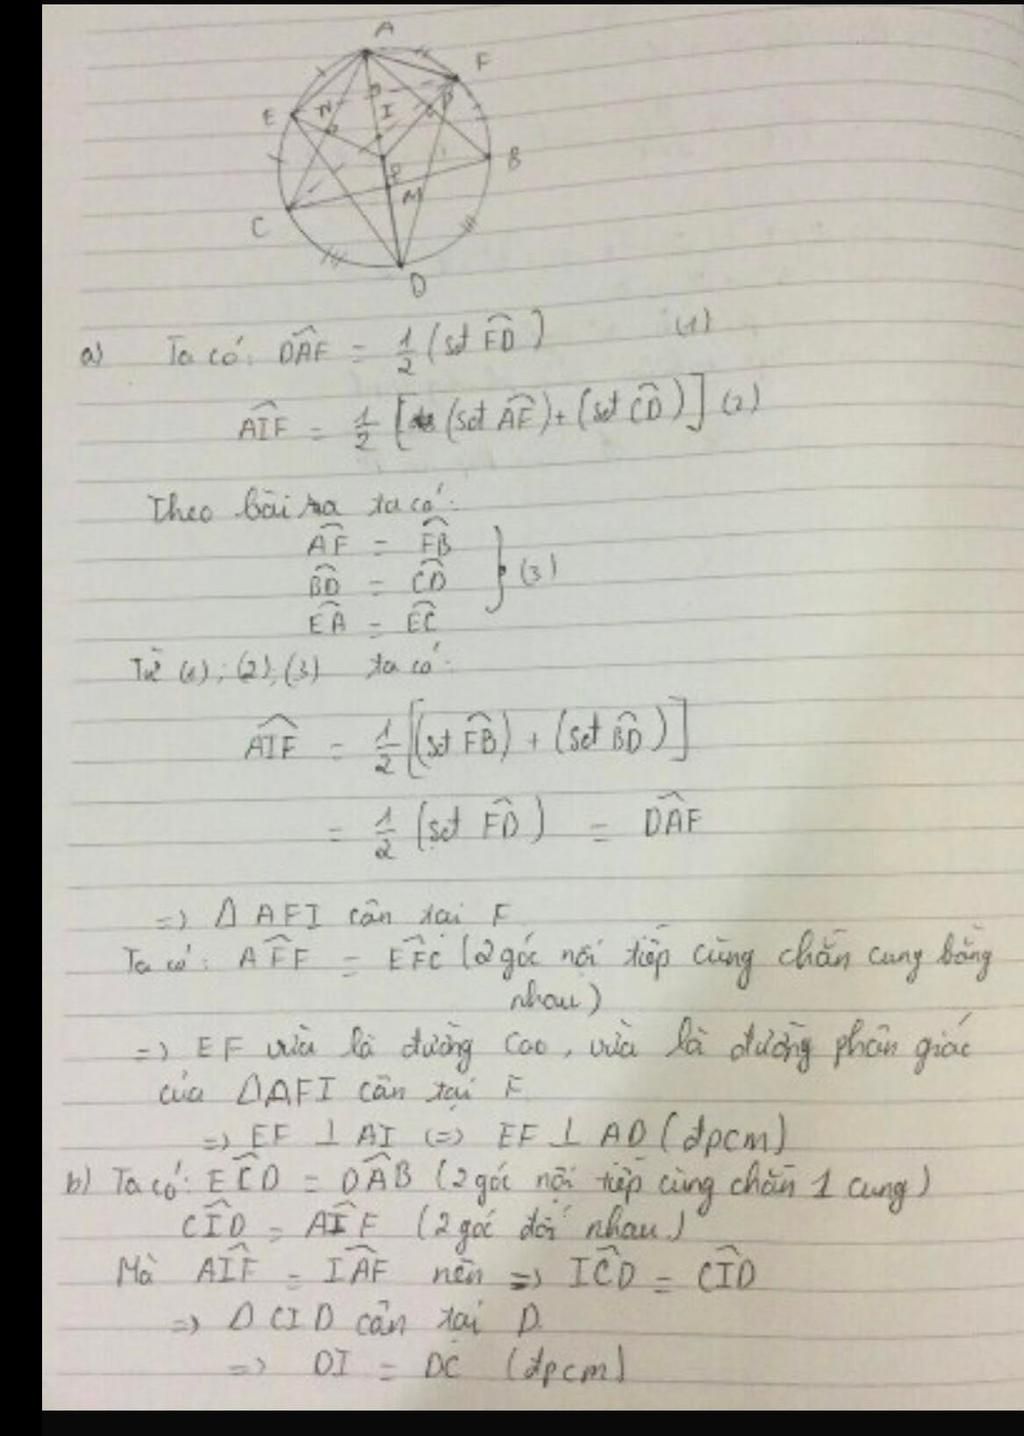 A
F
E
N
I
B
P
M
C
D
a) Ta có: DÂF = 1/2 (sđ F͡D) (1)
AÎF = 1/2 [(sđ A͡F) + (sđ C͡D)] (2)
Theo bài ra ta có:
A͡F = F͡B
B͡D = C͡D } (3)
E͡A = E͡C
Từ (1); (2); (3) ta có:
AÎF = 1/2 [(sđ F͡B) + (sđ B͡D)]
= 1/2 (sđ F͡D) = DÂF
=> Δ AFI cân tại F
Ta có: AF̂E = EF̂C (2 góc nội tiếp cùng chắn cung bằng
nhau)
=> EF vừa là đường cao, vừa là đường phân giác
của ΔAFI cân tại F
=> EF ⊥ AI (=> EF ⊥ AD (đpcm)
b) Ta có: FĈD = DÂF (2 góc nội tiếp cùng chắn 1 cung)
CÎD = AÎF (2 góc đối nhau)
Mà AÎF = IÂF nên => IĈD = CÎD
=> Δ CID cân tại D.
=> DI = DC (đpcm)